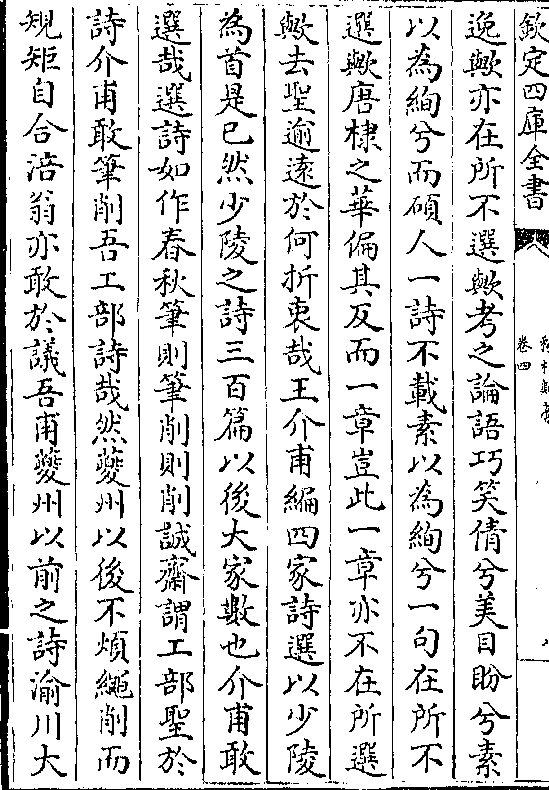 欽定四庫全書
卷四
逸歟亦在所不選歟考之論語巧笑倩兮美目盼兮素
以為絢兮而碩人一詩不載素以為絢兮一句在所不
選歟唐棣之華偏其反而一章豈此一章亦不在所選
歟去聖逾遠於何折衷哉王介甫編四家詩選以少陵
為首是已然少陵之詩三百篇以後大家數也介甫敢
選哉選詩如作春秋筆則筆削則削誠齋謂工部聖於
詩介甫敢筆削吾工部詩哉然夔州以後不煩繩削而
規矩自合涪翁亦敢於議吾甫夔州以前之詩渝川大